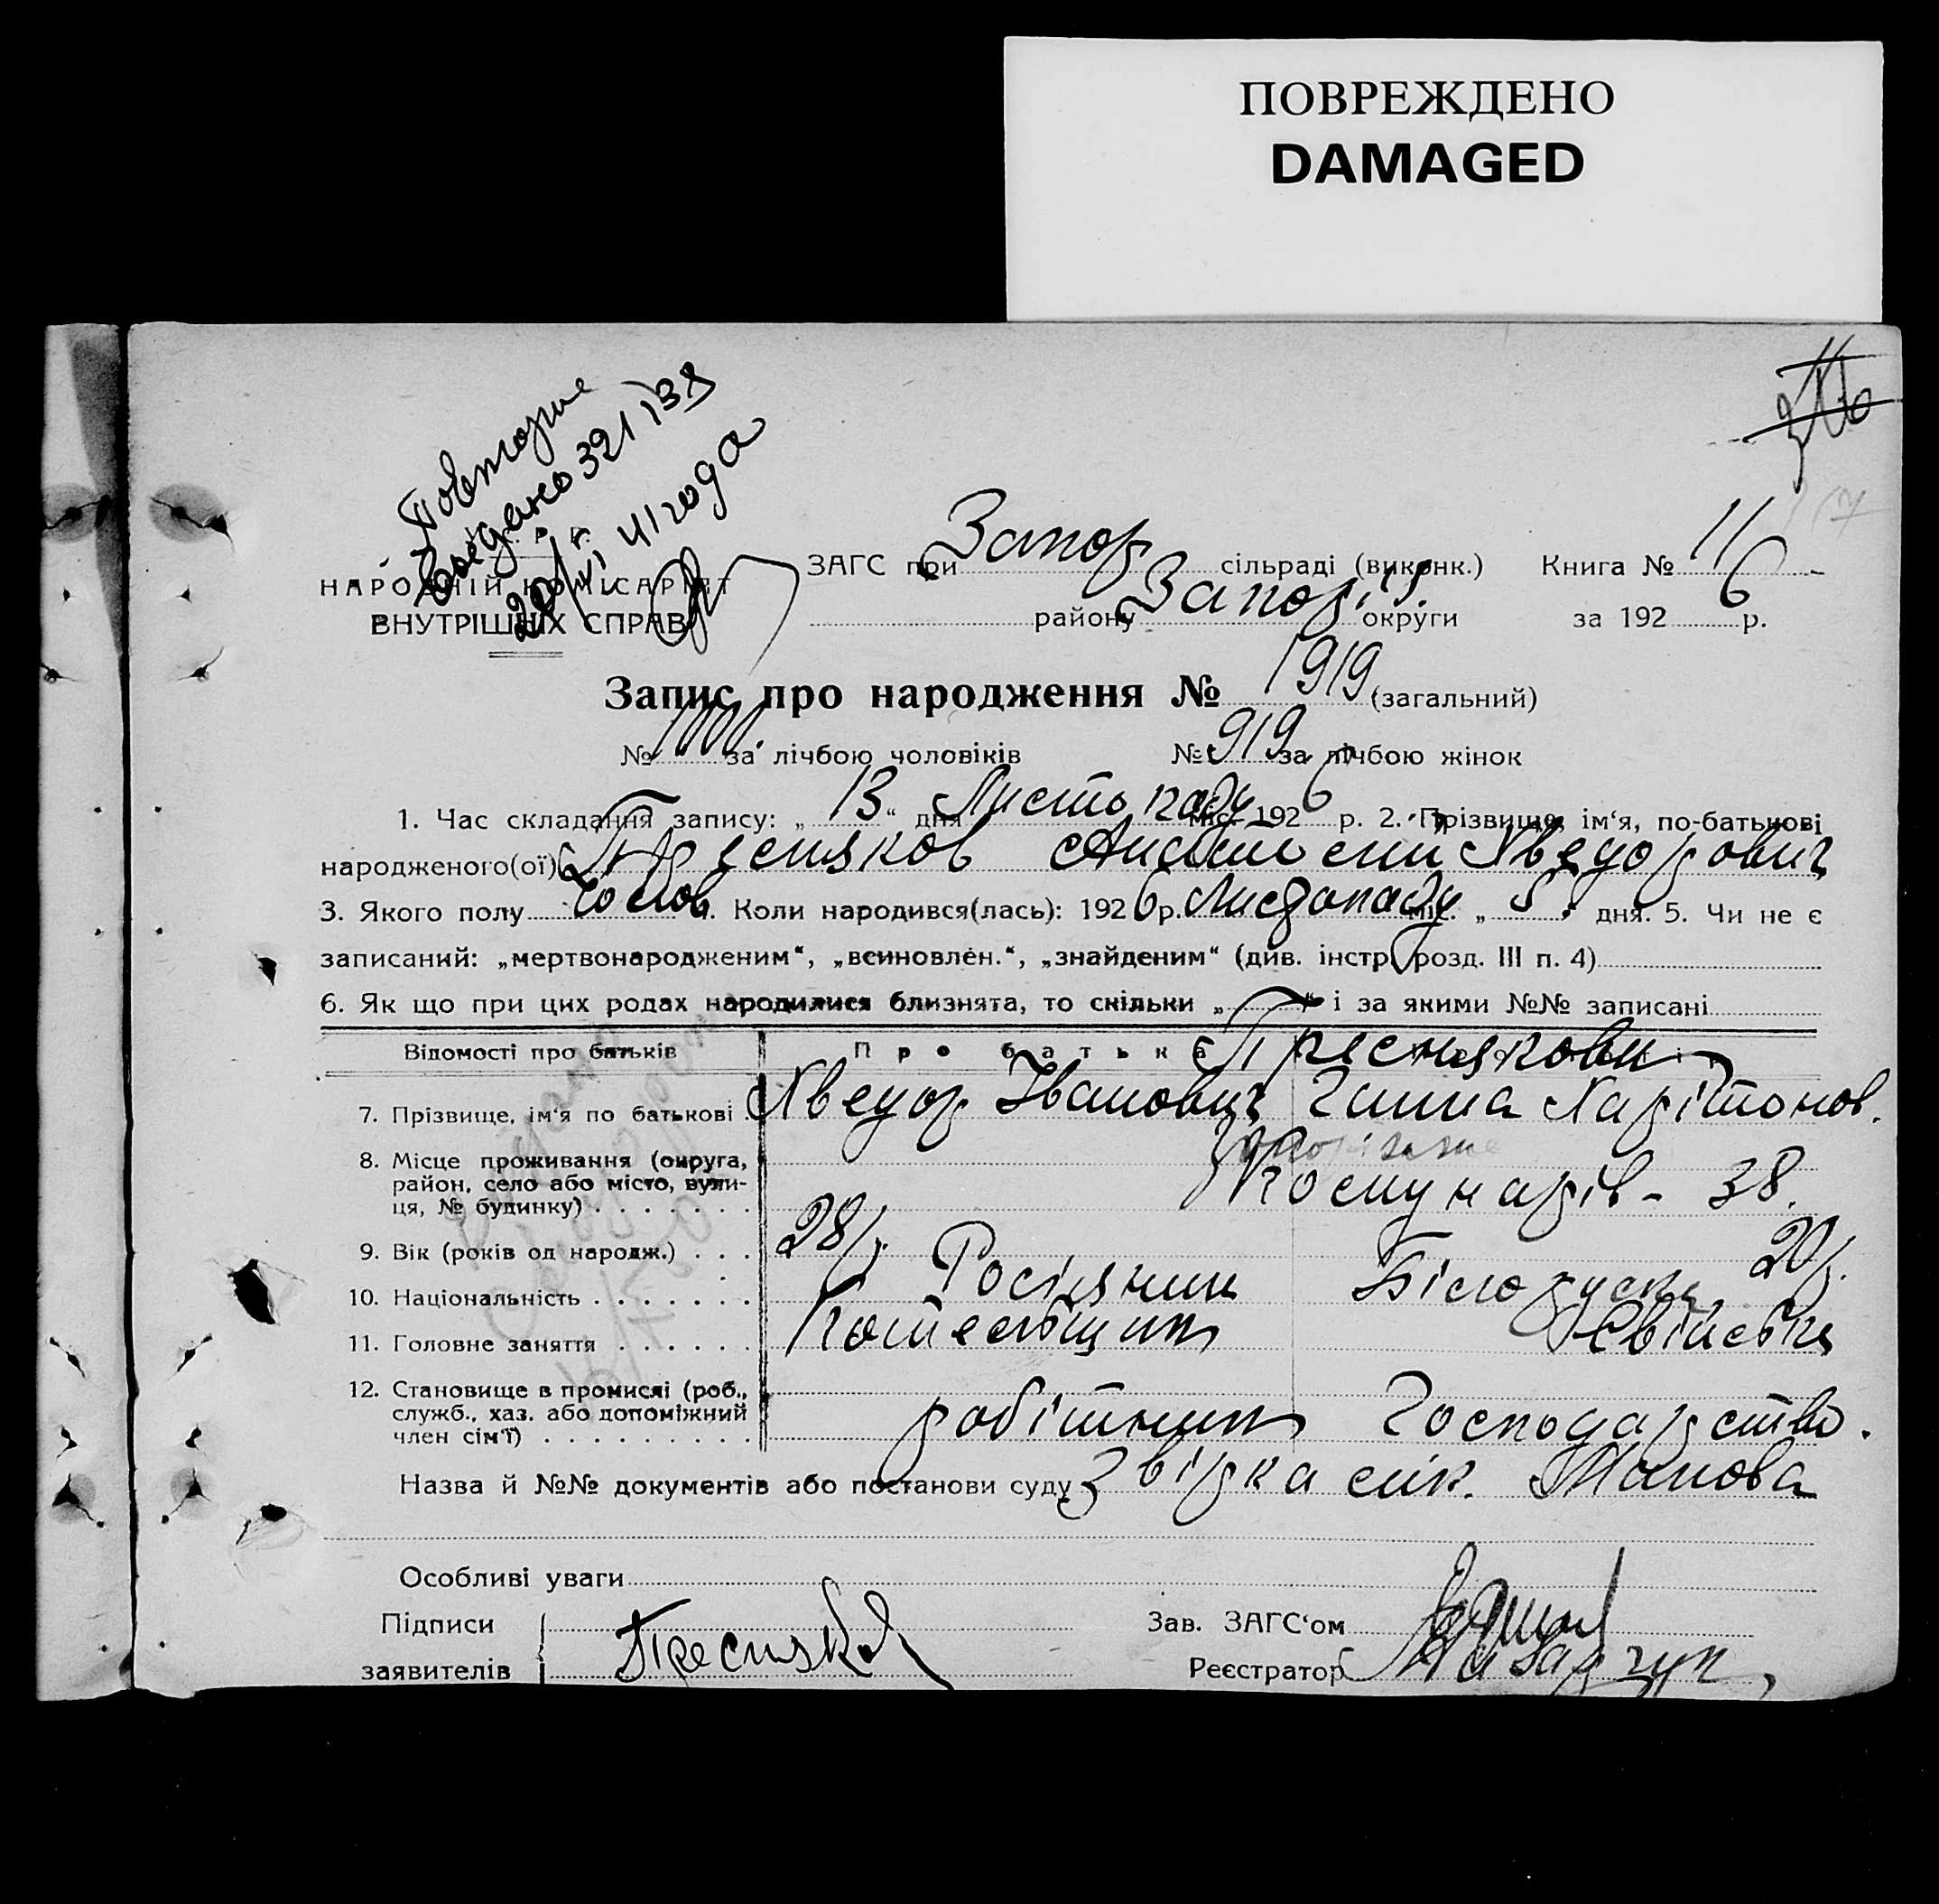 ПОВРЕЖДЕНО
DAMAGED
Повторне
Выдано 321138
20/VI 41 года
НАРОДНІЙ КОМІСАРІЯТ
ВНУТРІШНІХ СПРАВ
ЗАГС при Запор сільраді (виконк.) Книга № 11
району Запоріз. округи за 1926 р.
Запис про народження № 1919 (загальний)
№ 1000 за лічбою чоловіків № 919 за лічбою жінок
1. Час складання запису: „ 13 “ дня Листопаду міс. 1926 р. 2. Прізвище, ім‘я, по-батькові
народженого(ої) Пресняков Хведорович
3. Якого полу Чолов. 4. Коли народився(лась): 1926 р. Листопаду міс. „ 5 “ дня. 5. Чи не є
записаний: „мертвонародженим“, „всиновлен.“, „знайденим“ (див. інстр. розд. III п. 4)
6. Як що при цих родах народилися близнята, то скільки „ “ і за якими №№ записані
Відомості про батьків Про батька Преснякови
7. Прізвище, ім‘я по батькові Хведор Іванович Ганна Харітонов.
8. Місце проживання (округа, район, село або місто, вулиця, № будинку) Комунарів - 38.
9. Вік (років од народж.) 28 р. 20 р.
10. Національність Росіянин Білоруска
11. Головне заняття Котельщик Свійське
12. Становище в промислі (роб., служб., хаз. або допоміжний член сім‘ї) робітник Господарство.
Назва й №№ документів або постанови суду Звірка
Особливі уваги
Підписи Зав. ЗАГС‘ом
заявителів Пресняков Реєстратор Назарчук